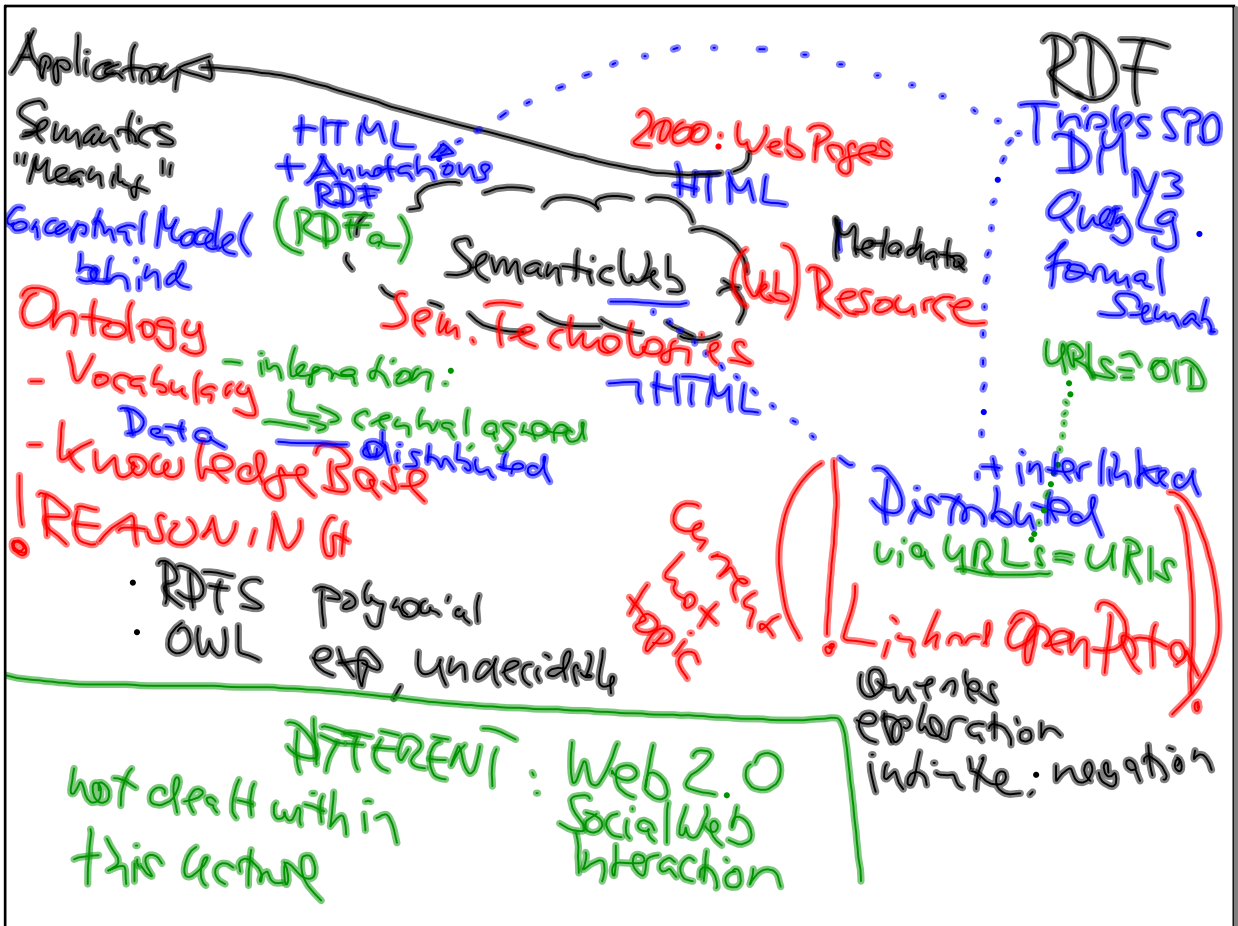 Application
Semantics
"Meaning"
Conceptual Model
behind
Ontology
- Vocabulary
Data
- Knowledge Base
! REASONING
• RDFS polynomial
• OWL exp, undecidable
HTML
+ Annotations
RDF
(RDFa)
- integration:
↳ central agreed
distributed
2000: WebPages
HTML
SemanticWeb
Sem. Technologies
¬HTML
Metadata
(Web) Resource
RDF
Triples SPO
DM
N3
Query Lg.
formal
Semant
URLs = OID
+ interlinked
Distributed
via URLs = URIs
Current
hot
topic
(! Linked Open Data !)
Queries
exploration
infinite: negation
DIFFERENT: Web 2.0
Social Web
Interaction
not dealt with in
this lecture